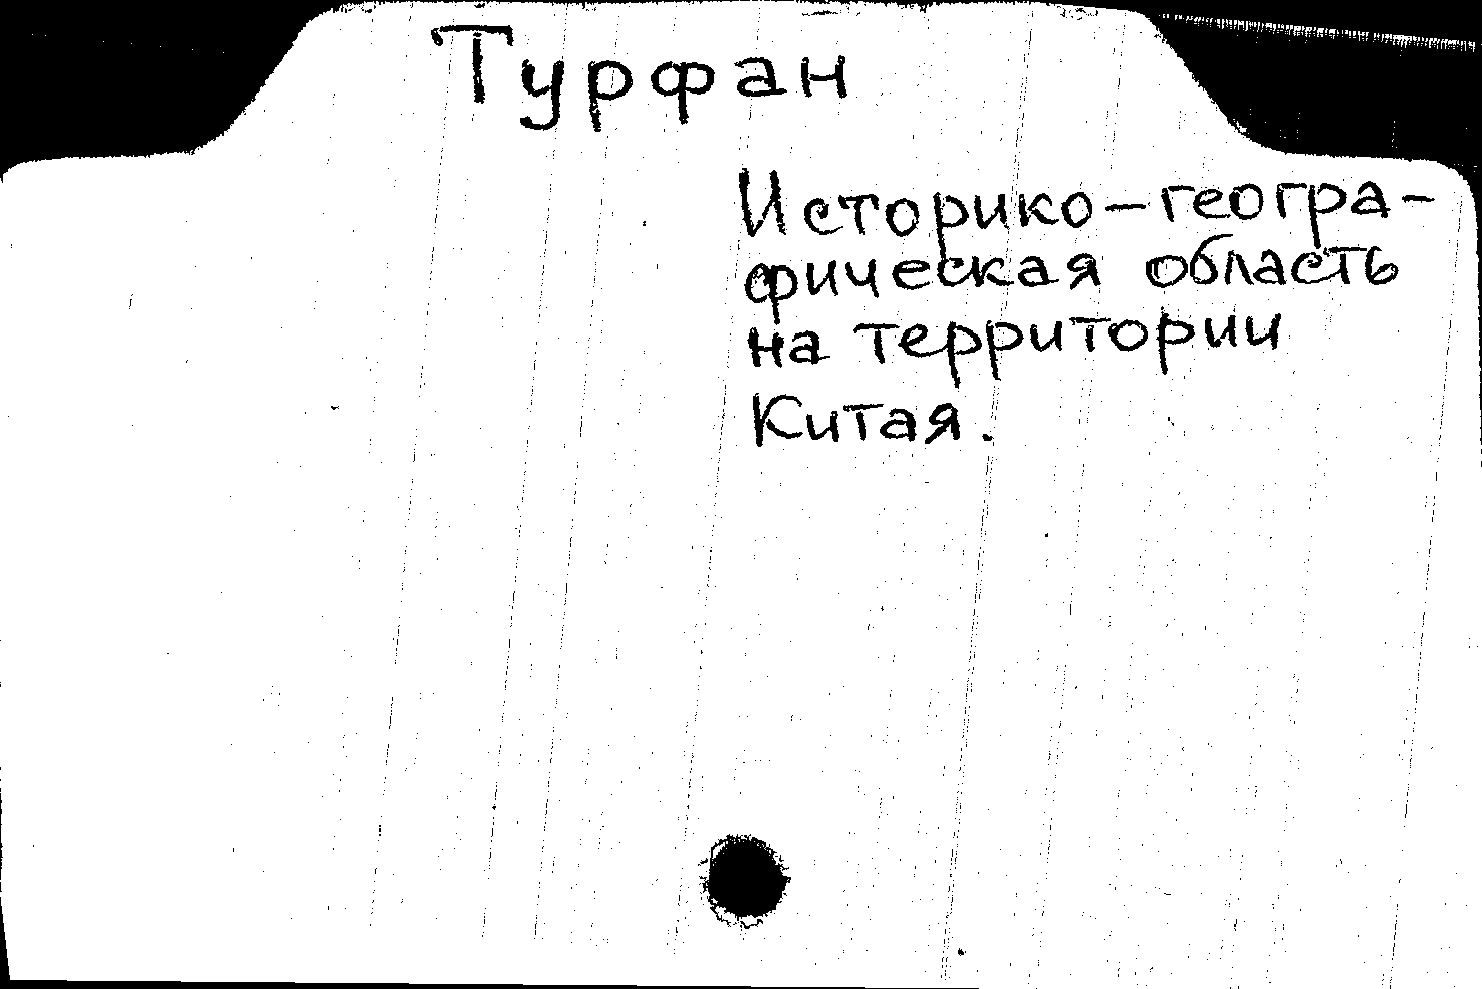 Турфан
Историко-геогра-
фическая область
на территории
Китая.